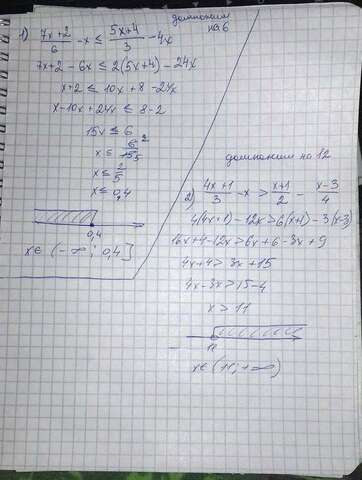 домножим
на 6
1) (7x+2)/6 - x ≤ (5x+4)/3 - 4x
7x+2 - 6x ≤ 2(5x+4) - 24x
x+2 ≤ 10x + 8 - 24x
x - 10x + 24x ≤ 8-2
15x ≤ 6
x ≤ 6/15 2/5
x ≤ 2/5
x ≤ 0,4
0,4
x∈ (-∞; 0,4]
домножим на 12
2) (4x+1)/3 - x > (x+1)/2 - (x-3)/4
4(4x+1) - 12x > 6(x+1) - 3(x-3)
16x+4-12x > 6x+6-3x+9
4x+4 > 3x+15
4x-3x > 15-4
x > 11
11
x∈ (11; +∞)